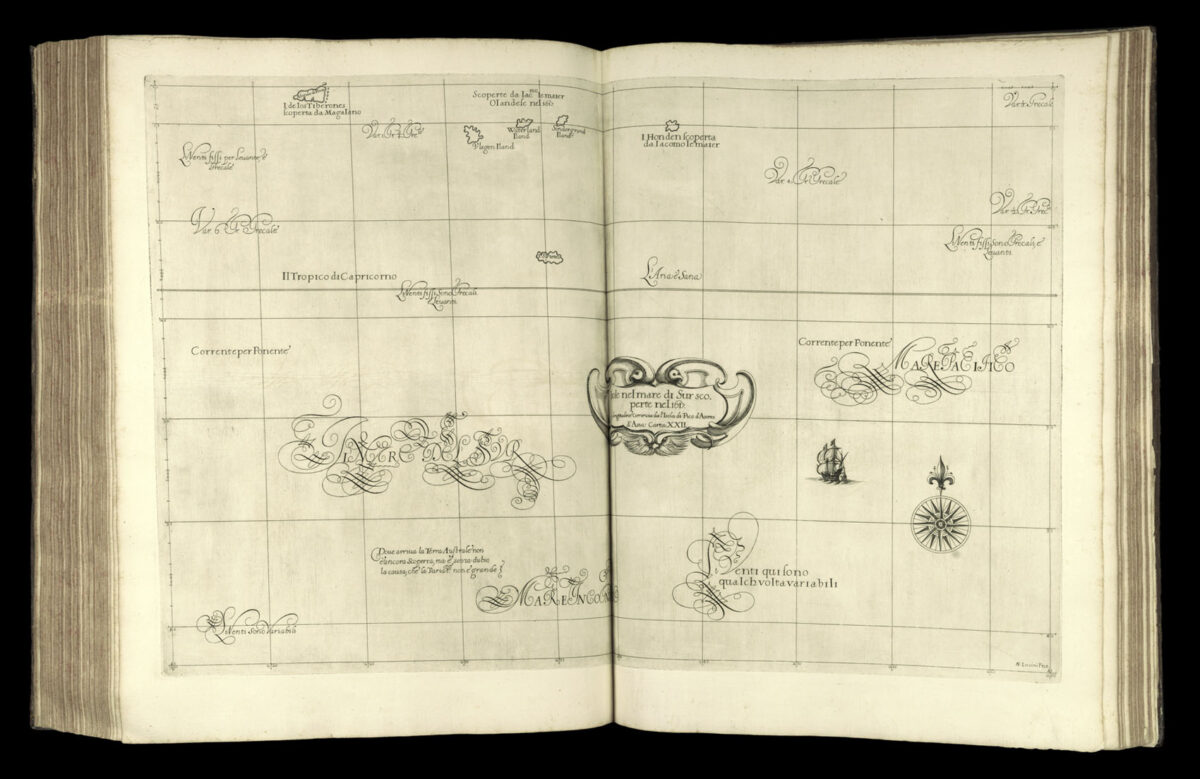 I de los Tiberones
scoperta da Magaliano
Scoperte da Iac.mo lemaier
Olandese nel 1617
Var. 5. Grecale
Var. 6. Gr. Gre.
Vliegen Eiland
Waterland
Eiland
Sondergrond
Eiland
I Honden scoperta
da Iacomo lemaier
I Venti fissi per Levante, e
Grecale
Var. 4. Gr. Grecale
Var. Gr. Grec.
Var. 6. Gr. Grecale
I Venti fissi sono Grecali, e
Levanti.
Il Tropico di Capricorno
L'Aria è Sana
I Venti fissi sono Grecali
Levanti.
Corrente per Ponente
Corrente per Ponente
MARE PACIFICO
nel mare di Sur sco,
perte nel 1617.
comincia da l'Isola di Pico d'Asores
d'Am: Carta XXII
MARE DEL SUR
Doue arriua la Terra Australe non
è ancora Scoperta, ma è senza dubio
la causa, che la Variat. non è grande
MARE INCO
Venti qui sono
qualch volta variabili
I Venti sono Variabili